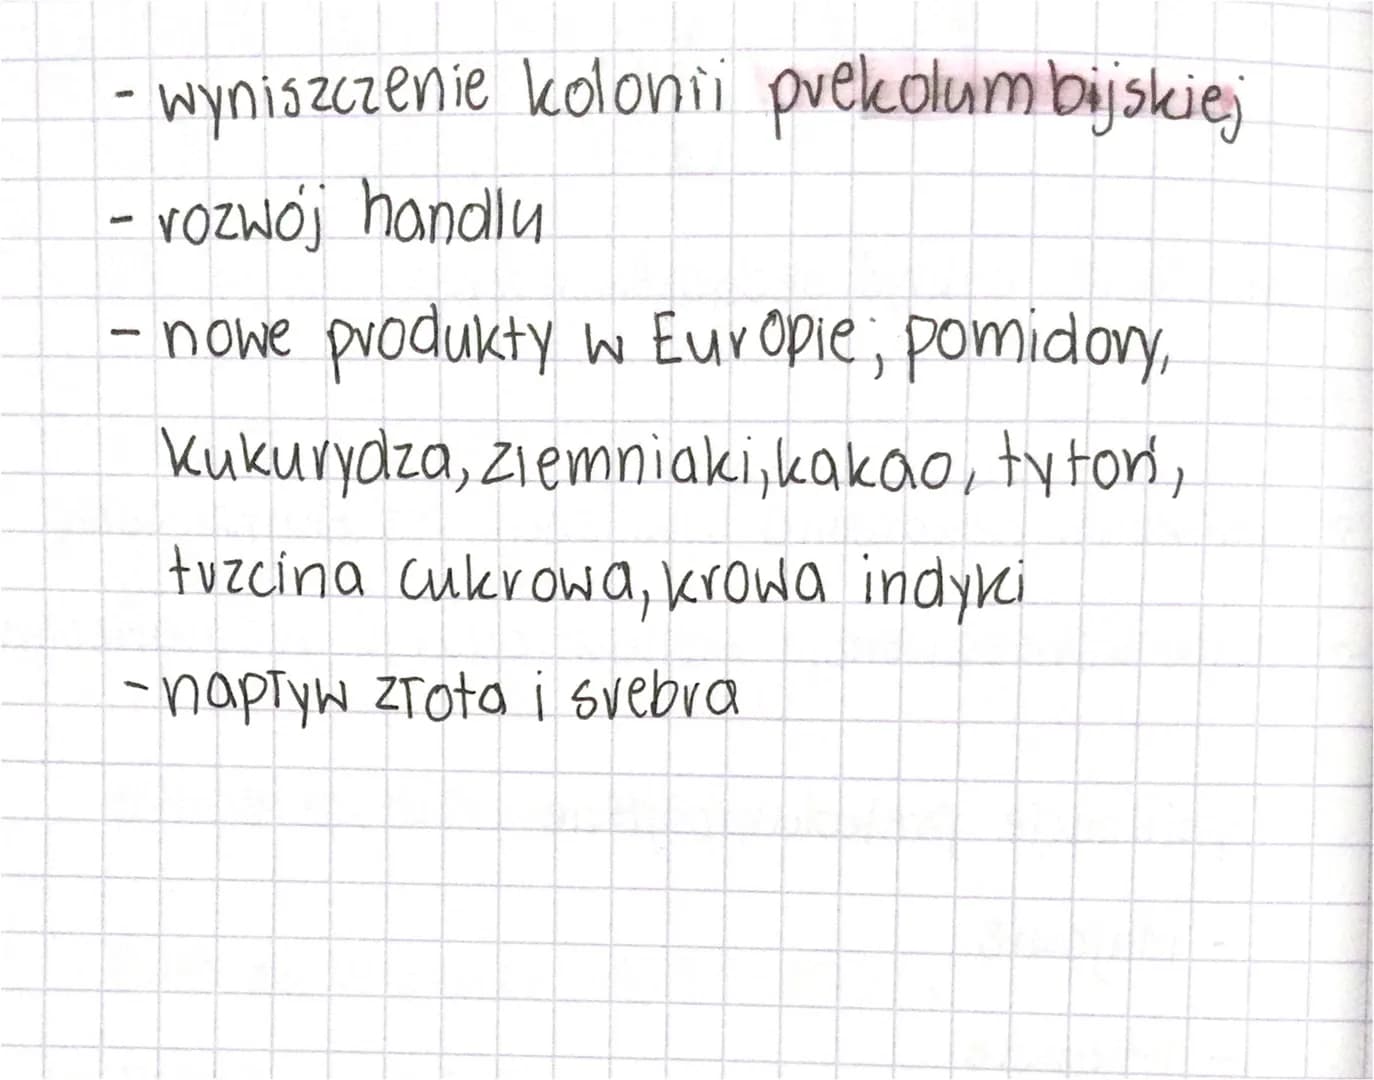 - wyniszczenie kolonii prekolumbijskiej
- rozwój handlu
- nowe produkty w Europie; pomidory,
kukurydza, ziemniaki, kakao, tytoń,
trzcina cukrowa, krowa indyki
- napływ złota i srebra